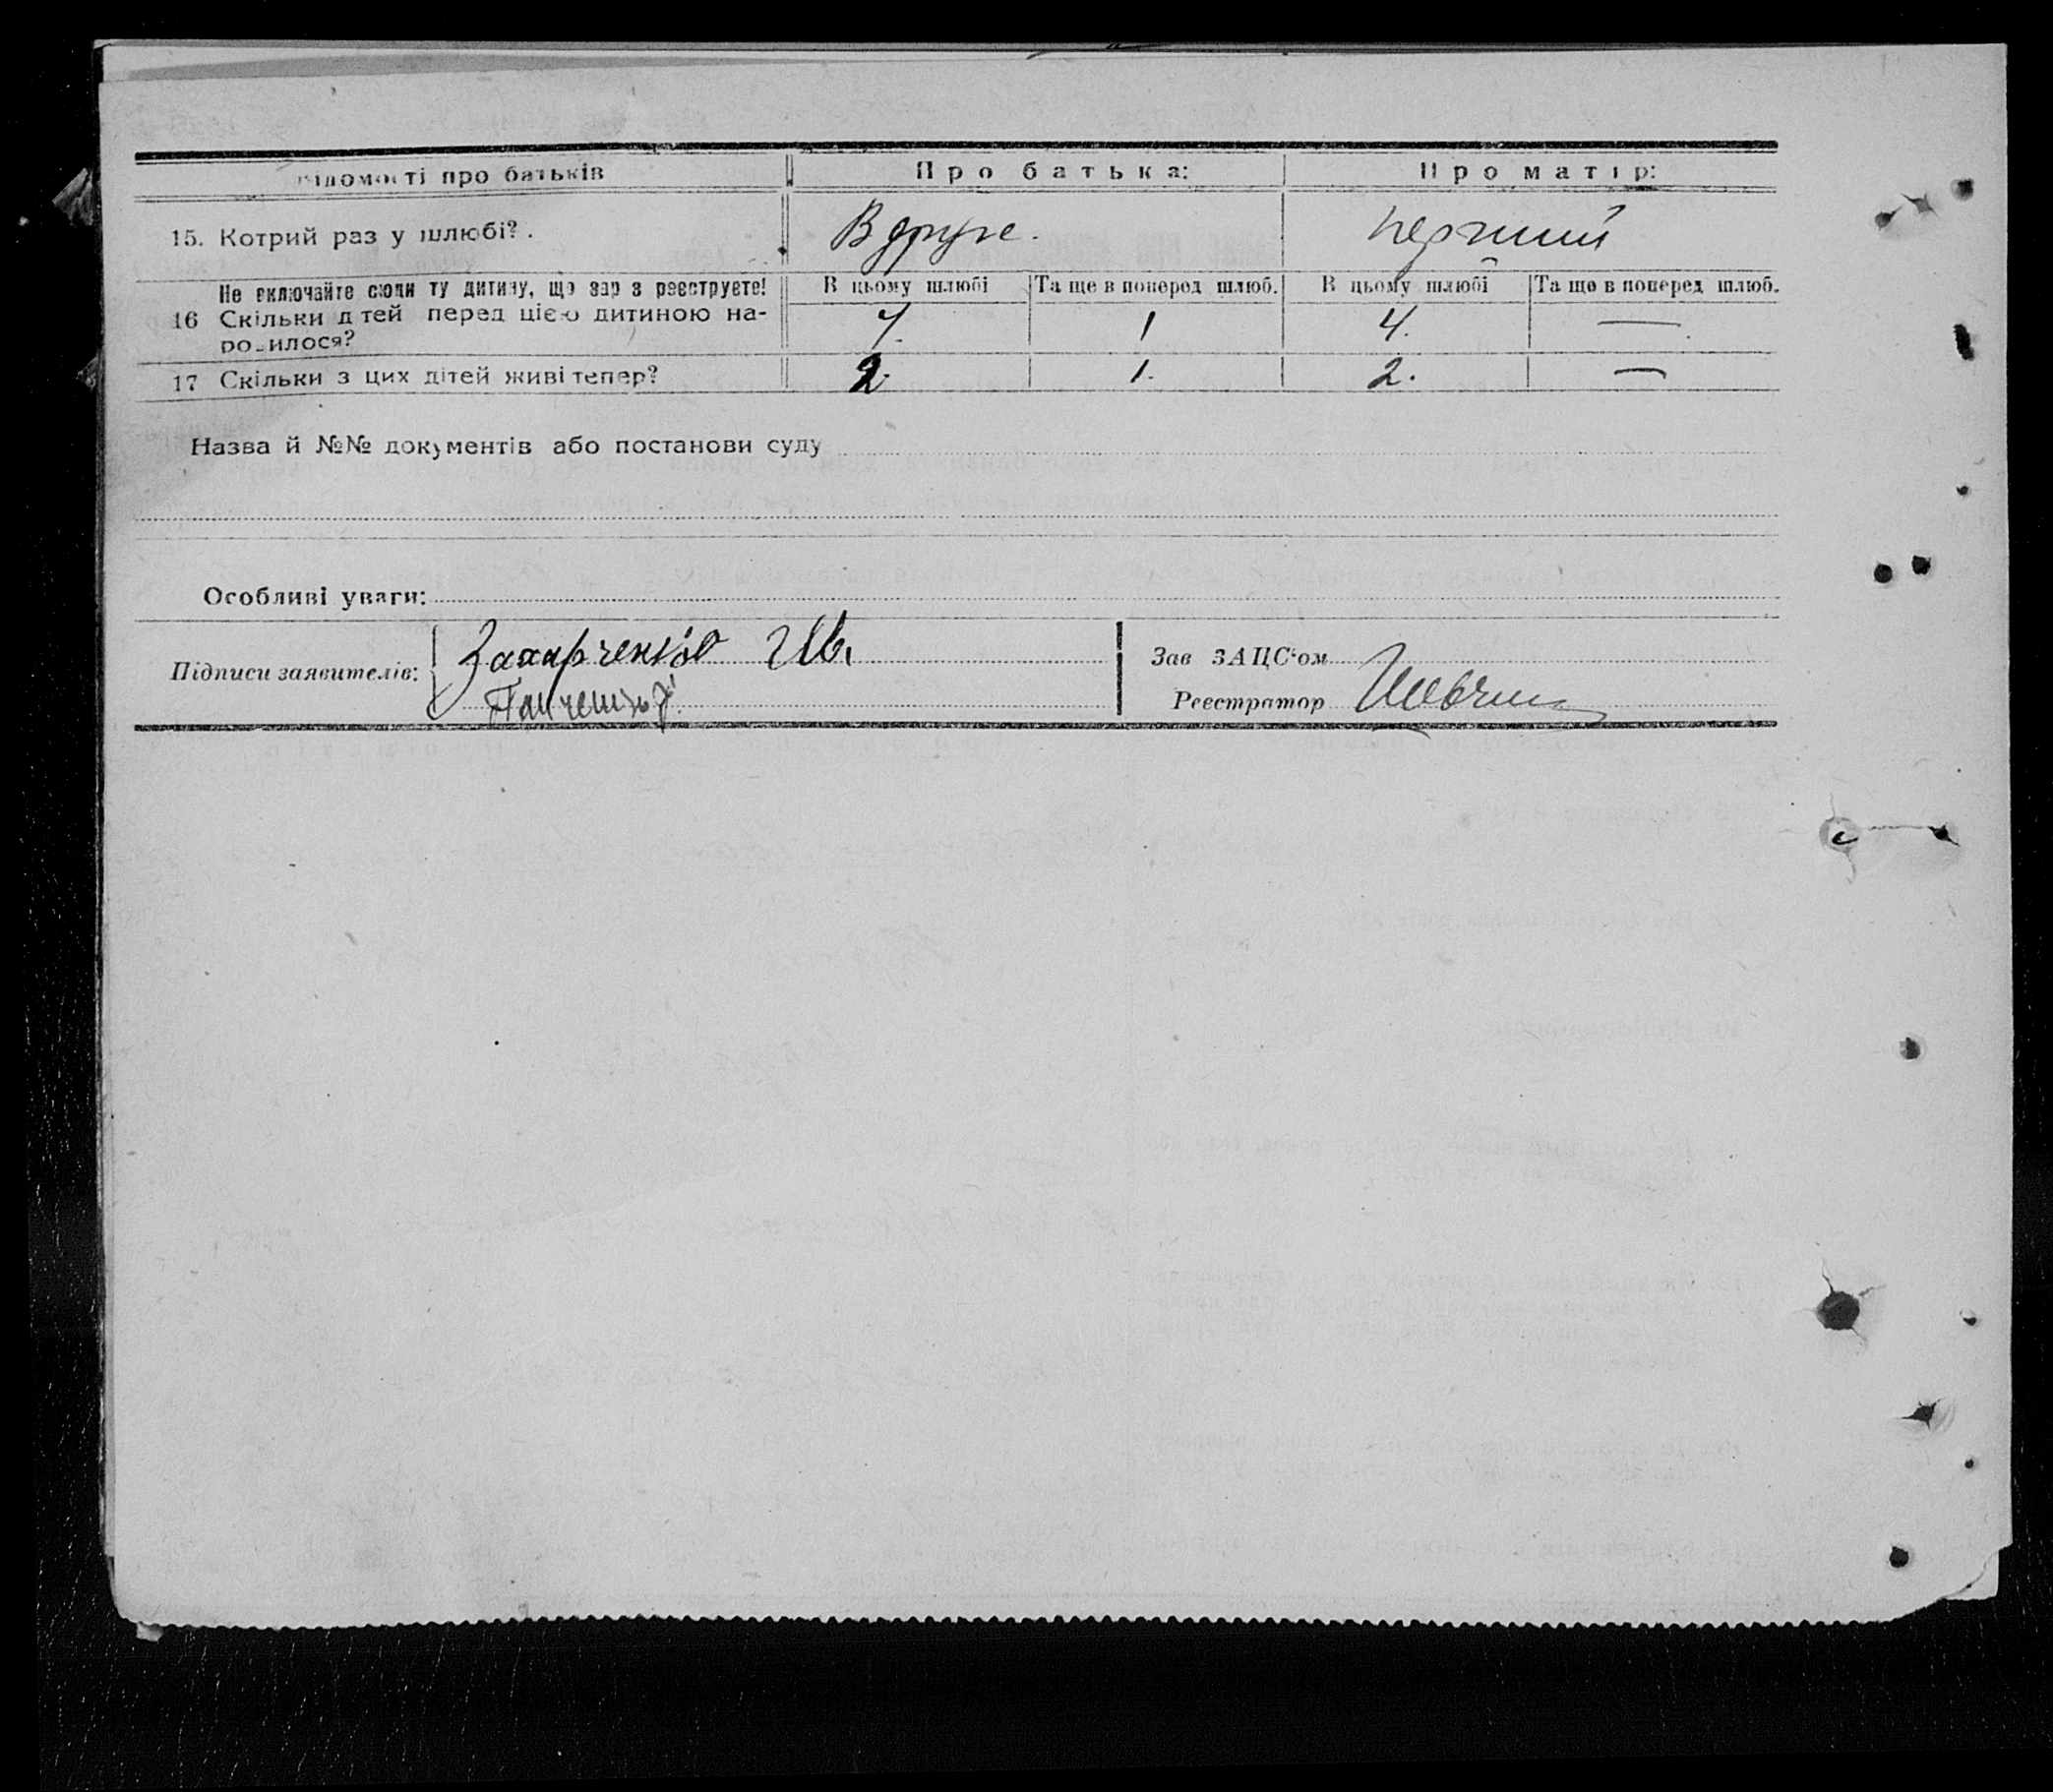 Відомості про батьків Про батька: Про матір:
15. Котрий раз у шлюбі?. Вдруге. перший
Не включайте сюди ту дитину, що зараз реєструєте! В цьому шлюбі Та ще в поперед шлюб. В цьому шлюбі Та ще в поперед шлюб.
16 Скільки дітей перед цією дитиною на- 4. 1 4. —
родилося?
17 Скільки з цих дітей живі тепер? 2. 1. 2. —
Назва й №№ документів або постанови суду
Особливі уваги:
Підписи заявителів: Захарченко Зав ЗАЦС‘ом
Реєстратор